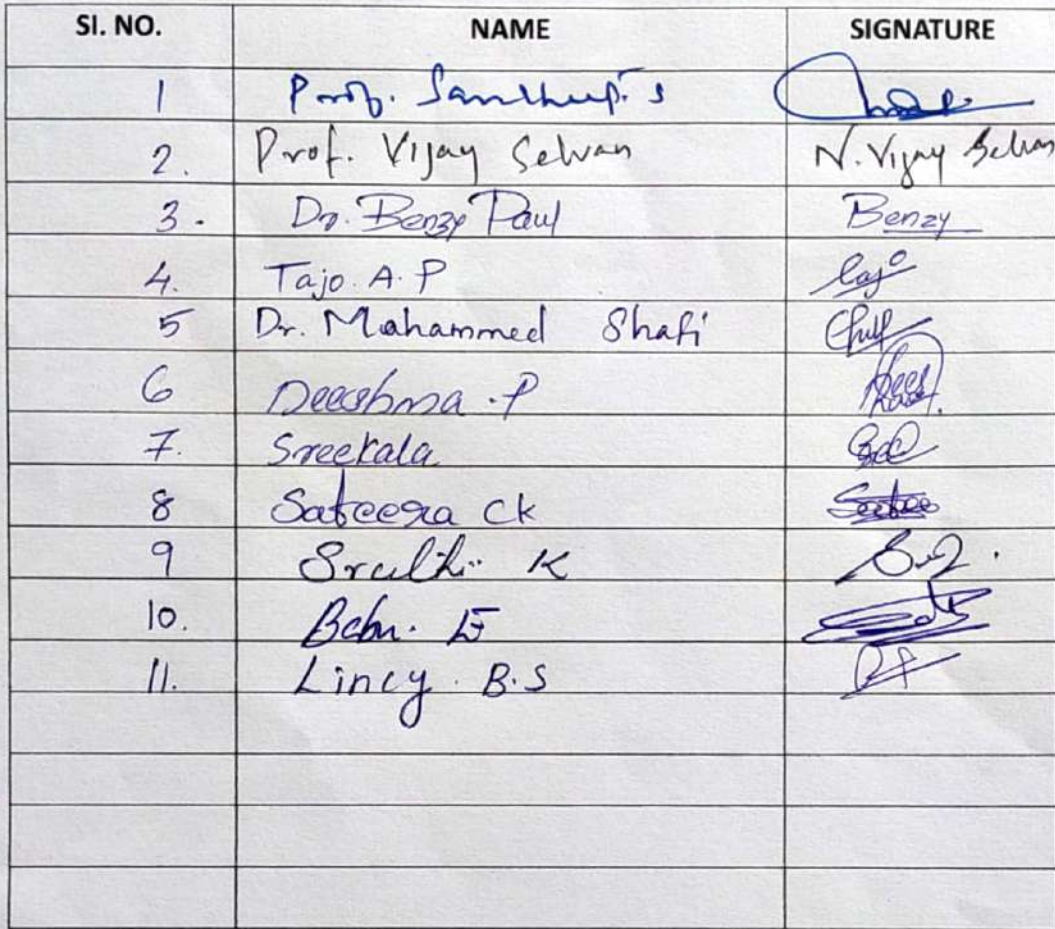 SI. NO. NAME SIGNATURE
1 Prof. Sandheep. S
2. Prof. Vijay Selvan N. Vijay Selvan
3. Dr. Benzy Paul Benzy
4. Tajo. A. P
5 Dr. Mohammed Shafi
6 Deeshma . P
7. Sreekala
8 Safeera Ck
9 Sruthi K
10. Babu. E
11. Lincy B.S